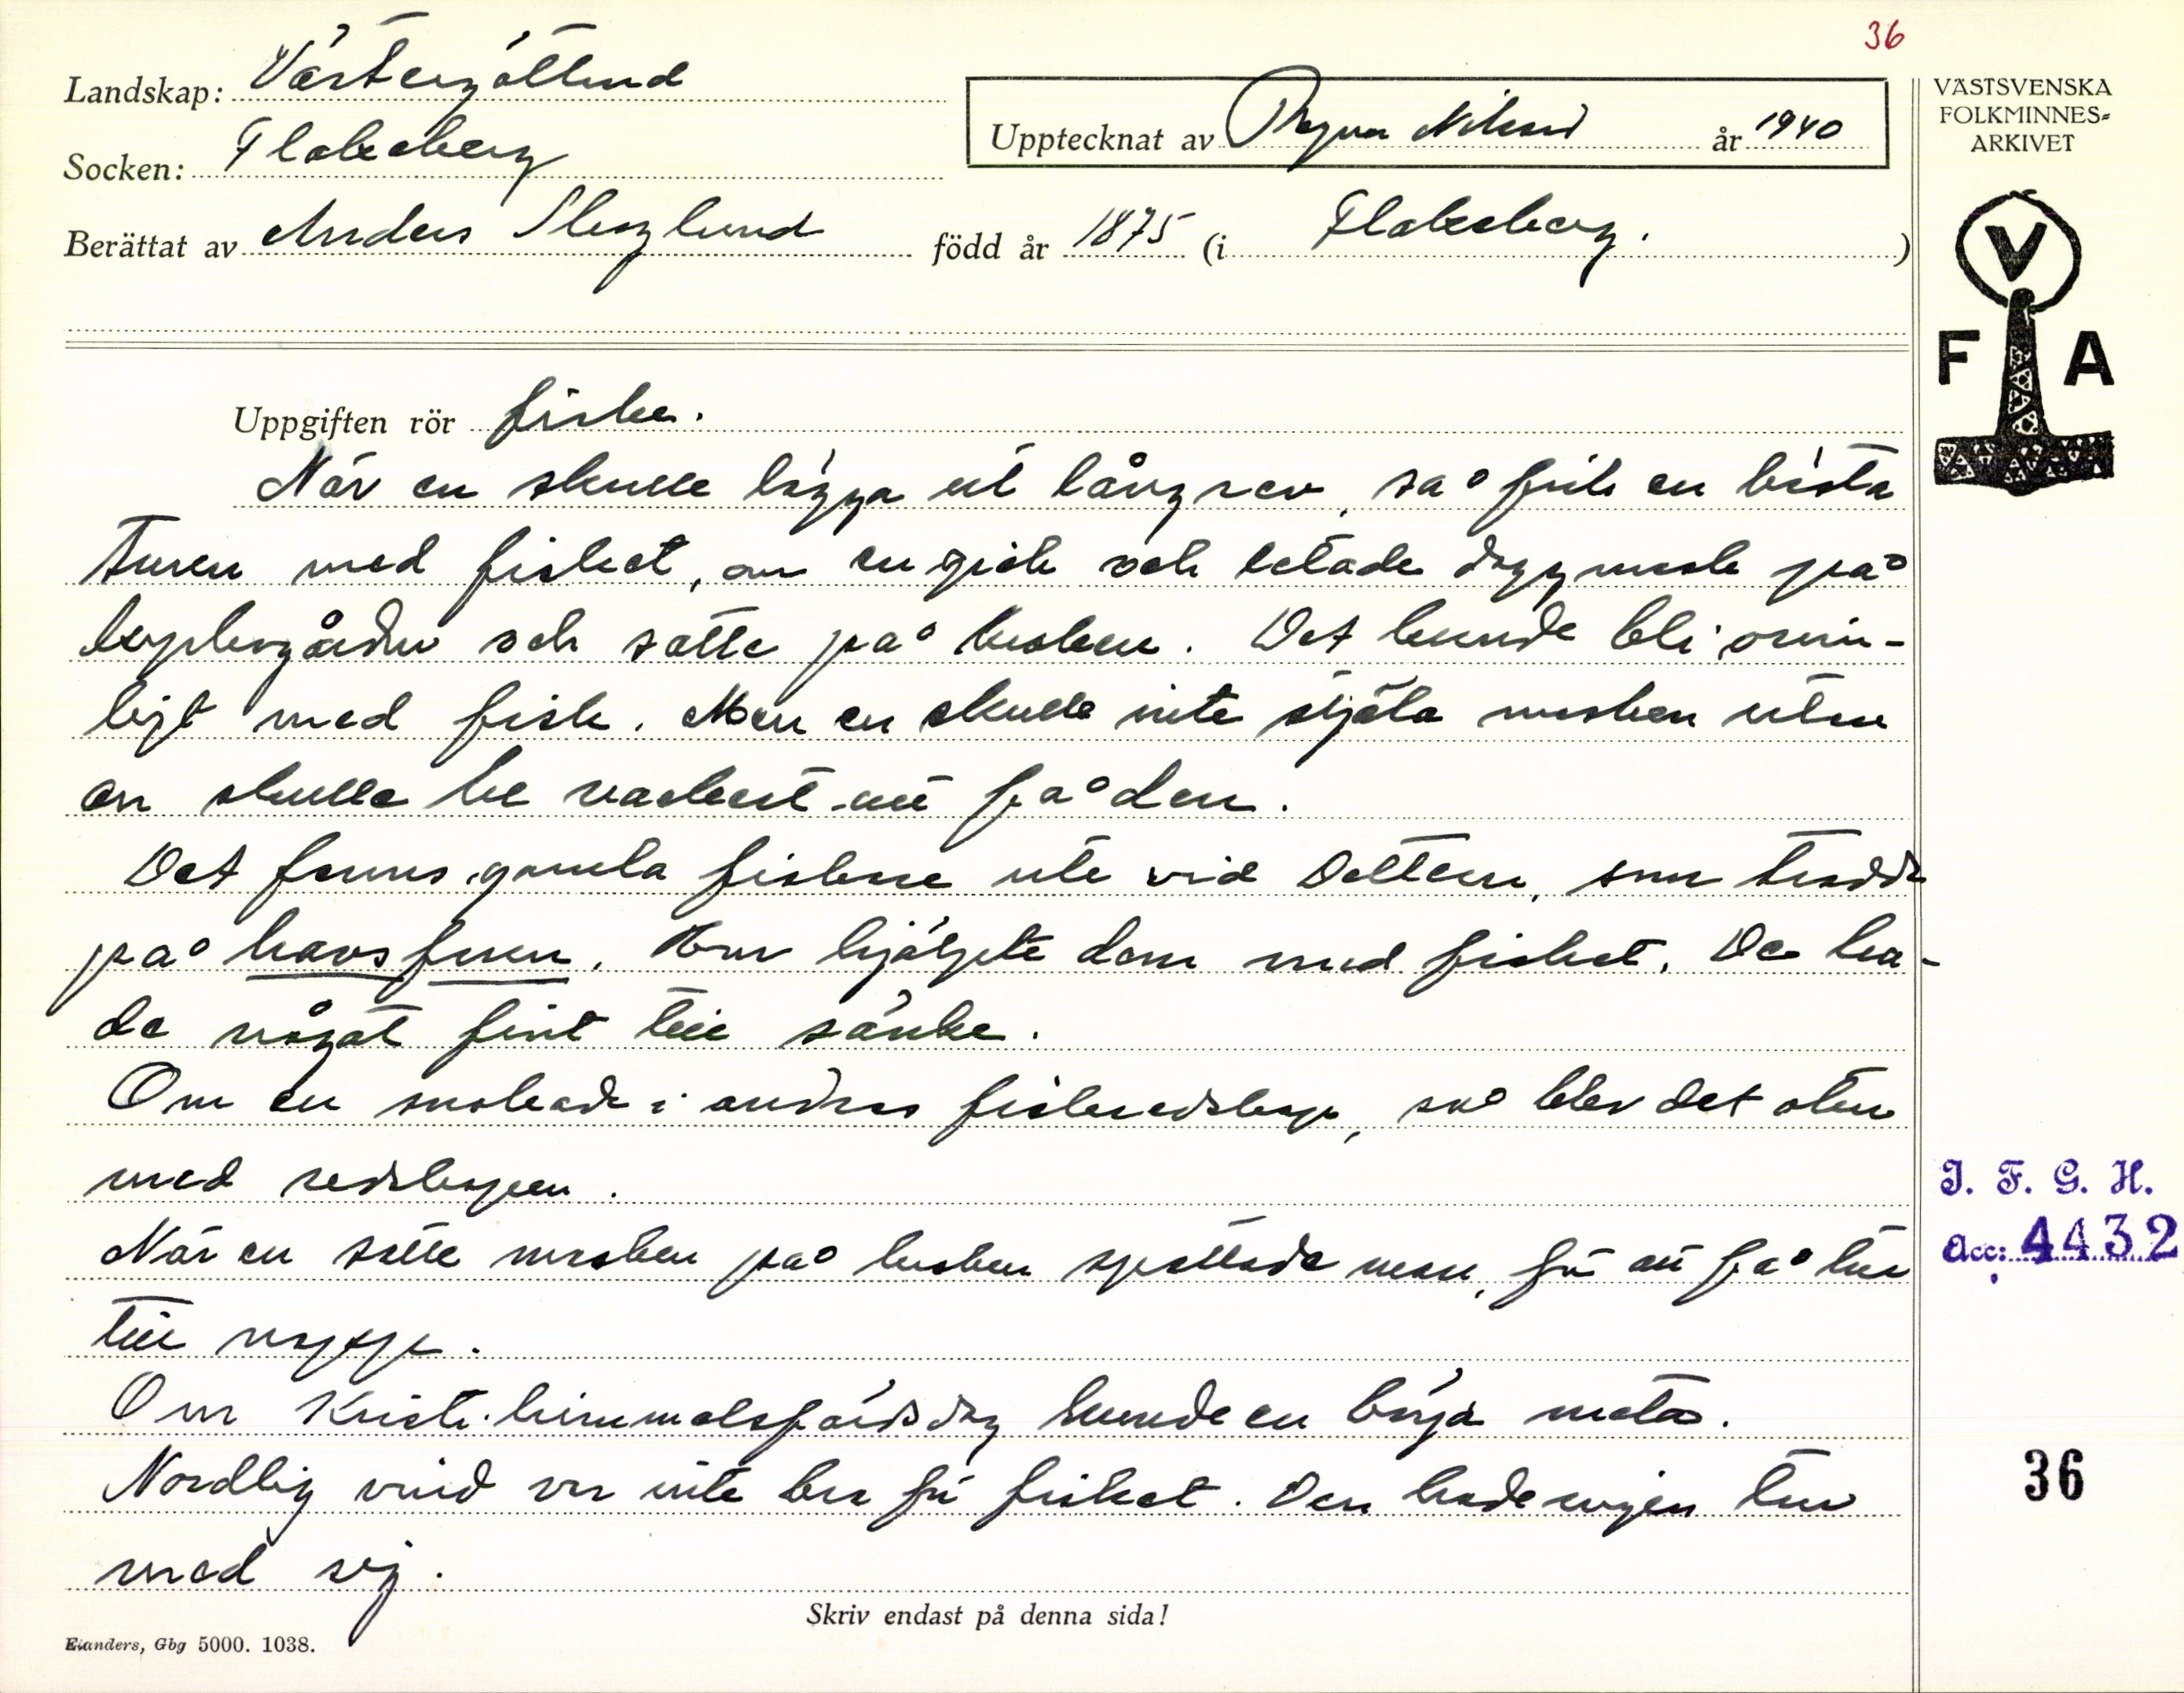 36
Landskap: Västergötland
Upptecknat av Ragnar Nilsson år 1940
VÄSTSVENSKA
FOLKMINNES=
ARKIVET
Socken: Flakeberg
Berättat av Anders Skoglund född år 1875 (i Flakeberg. )
V
F A
Uppgiften rör fiske.
När en skulle lägga ut långrev, så fick en bästa
turen med fisket, om en gick och letade daggmask på
kyrkogården och satte på kroken. Det kunde bli orim-
ligt med fisk. Men en skulle inte stjäla masken utan
en skulle be vackert att få den.
Det fanns gamla fiskare ute vid Dettern, som trodde
på havsfrun. Hon hjälpte dom med fisket. De ha-
de något fint till sänke.
Om en snokade i andras fiskredskap, så blev det otur
med redskapen.
När en satte masken på kroken spottade man, för att få tur
till napp.
Om Kristi himmelsfärdsdag kunde en börja meta.
Nordlig vind var inte bra för fisket. Den hade ingen tur
med sig.
I. F. G. H.
Acc: 4432
36
Skriv endast på denna sida!
Elanders, Gbg 5000. 1038.